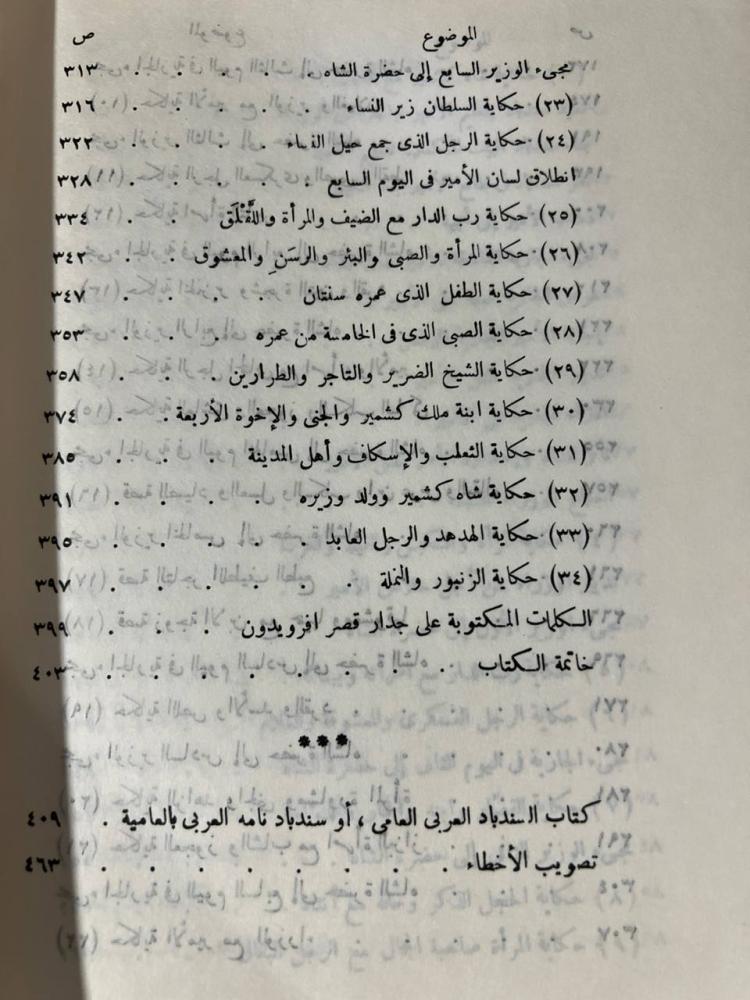 الموضوع ص
مجىء الوزير السابع إلى حضرة الشاه . . . . ٣١٣
(٢٣) حكاية السلطان زير النساء . . . . . ٣١٦
(٢٤) حكاية الرجل الذى جمع حيل النساء . . . . ٣٢٢
انطلاق لسان الأمير فى اليوم السابع . . . . . ٣٢٨
(٢٥) حكاية رب الدار مع الضيف والمرأة واللَّقْلَق . . . ٣٣٤
(٢٦) حكاية المرأة والصبى والبئر والرسَنِ والمعشوق . . ٣٤٢
(٢٧) حكاية الطفل الذى عمره سنتان . . . . ٣٤٧
(٢٨) حكاية الصبى الذى فى الخامسة من عمره . . . ٣٥٣
(٢٩) حكاية الشيخ الضرير والتاجر والطرارين . . . ٣٥٨
(٣٠) حكاية ابنة ملك كشمير والجنى والإخوة الأربعة . . ٣٧٤
(٣١) حكاية الثعلب والإسكاف وأهل المدينة . . . ٣٨٥
(٣٢) حكاية شاه كشمير وولد وزيره . . . . ٣٩١
(٣٣) حكاية الهدهد والرجل العابد . . . . ٣٩٥
(٣٤) حكاية الزنبور والنملة . . . . . . ٣٩٧
الكلمات المكتوبة على جدار قصر افرويدون . . . ٣٩٩
خاتمة الكتاب . . . . . . . ٤٠٣
***
كتاب السندباد العربى العامى ، أو سندباد نامه العربى بالعامية . ٤٠٩
تصويب الأخطاء . . . . . . . . ٤٦٣